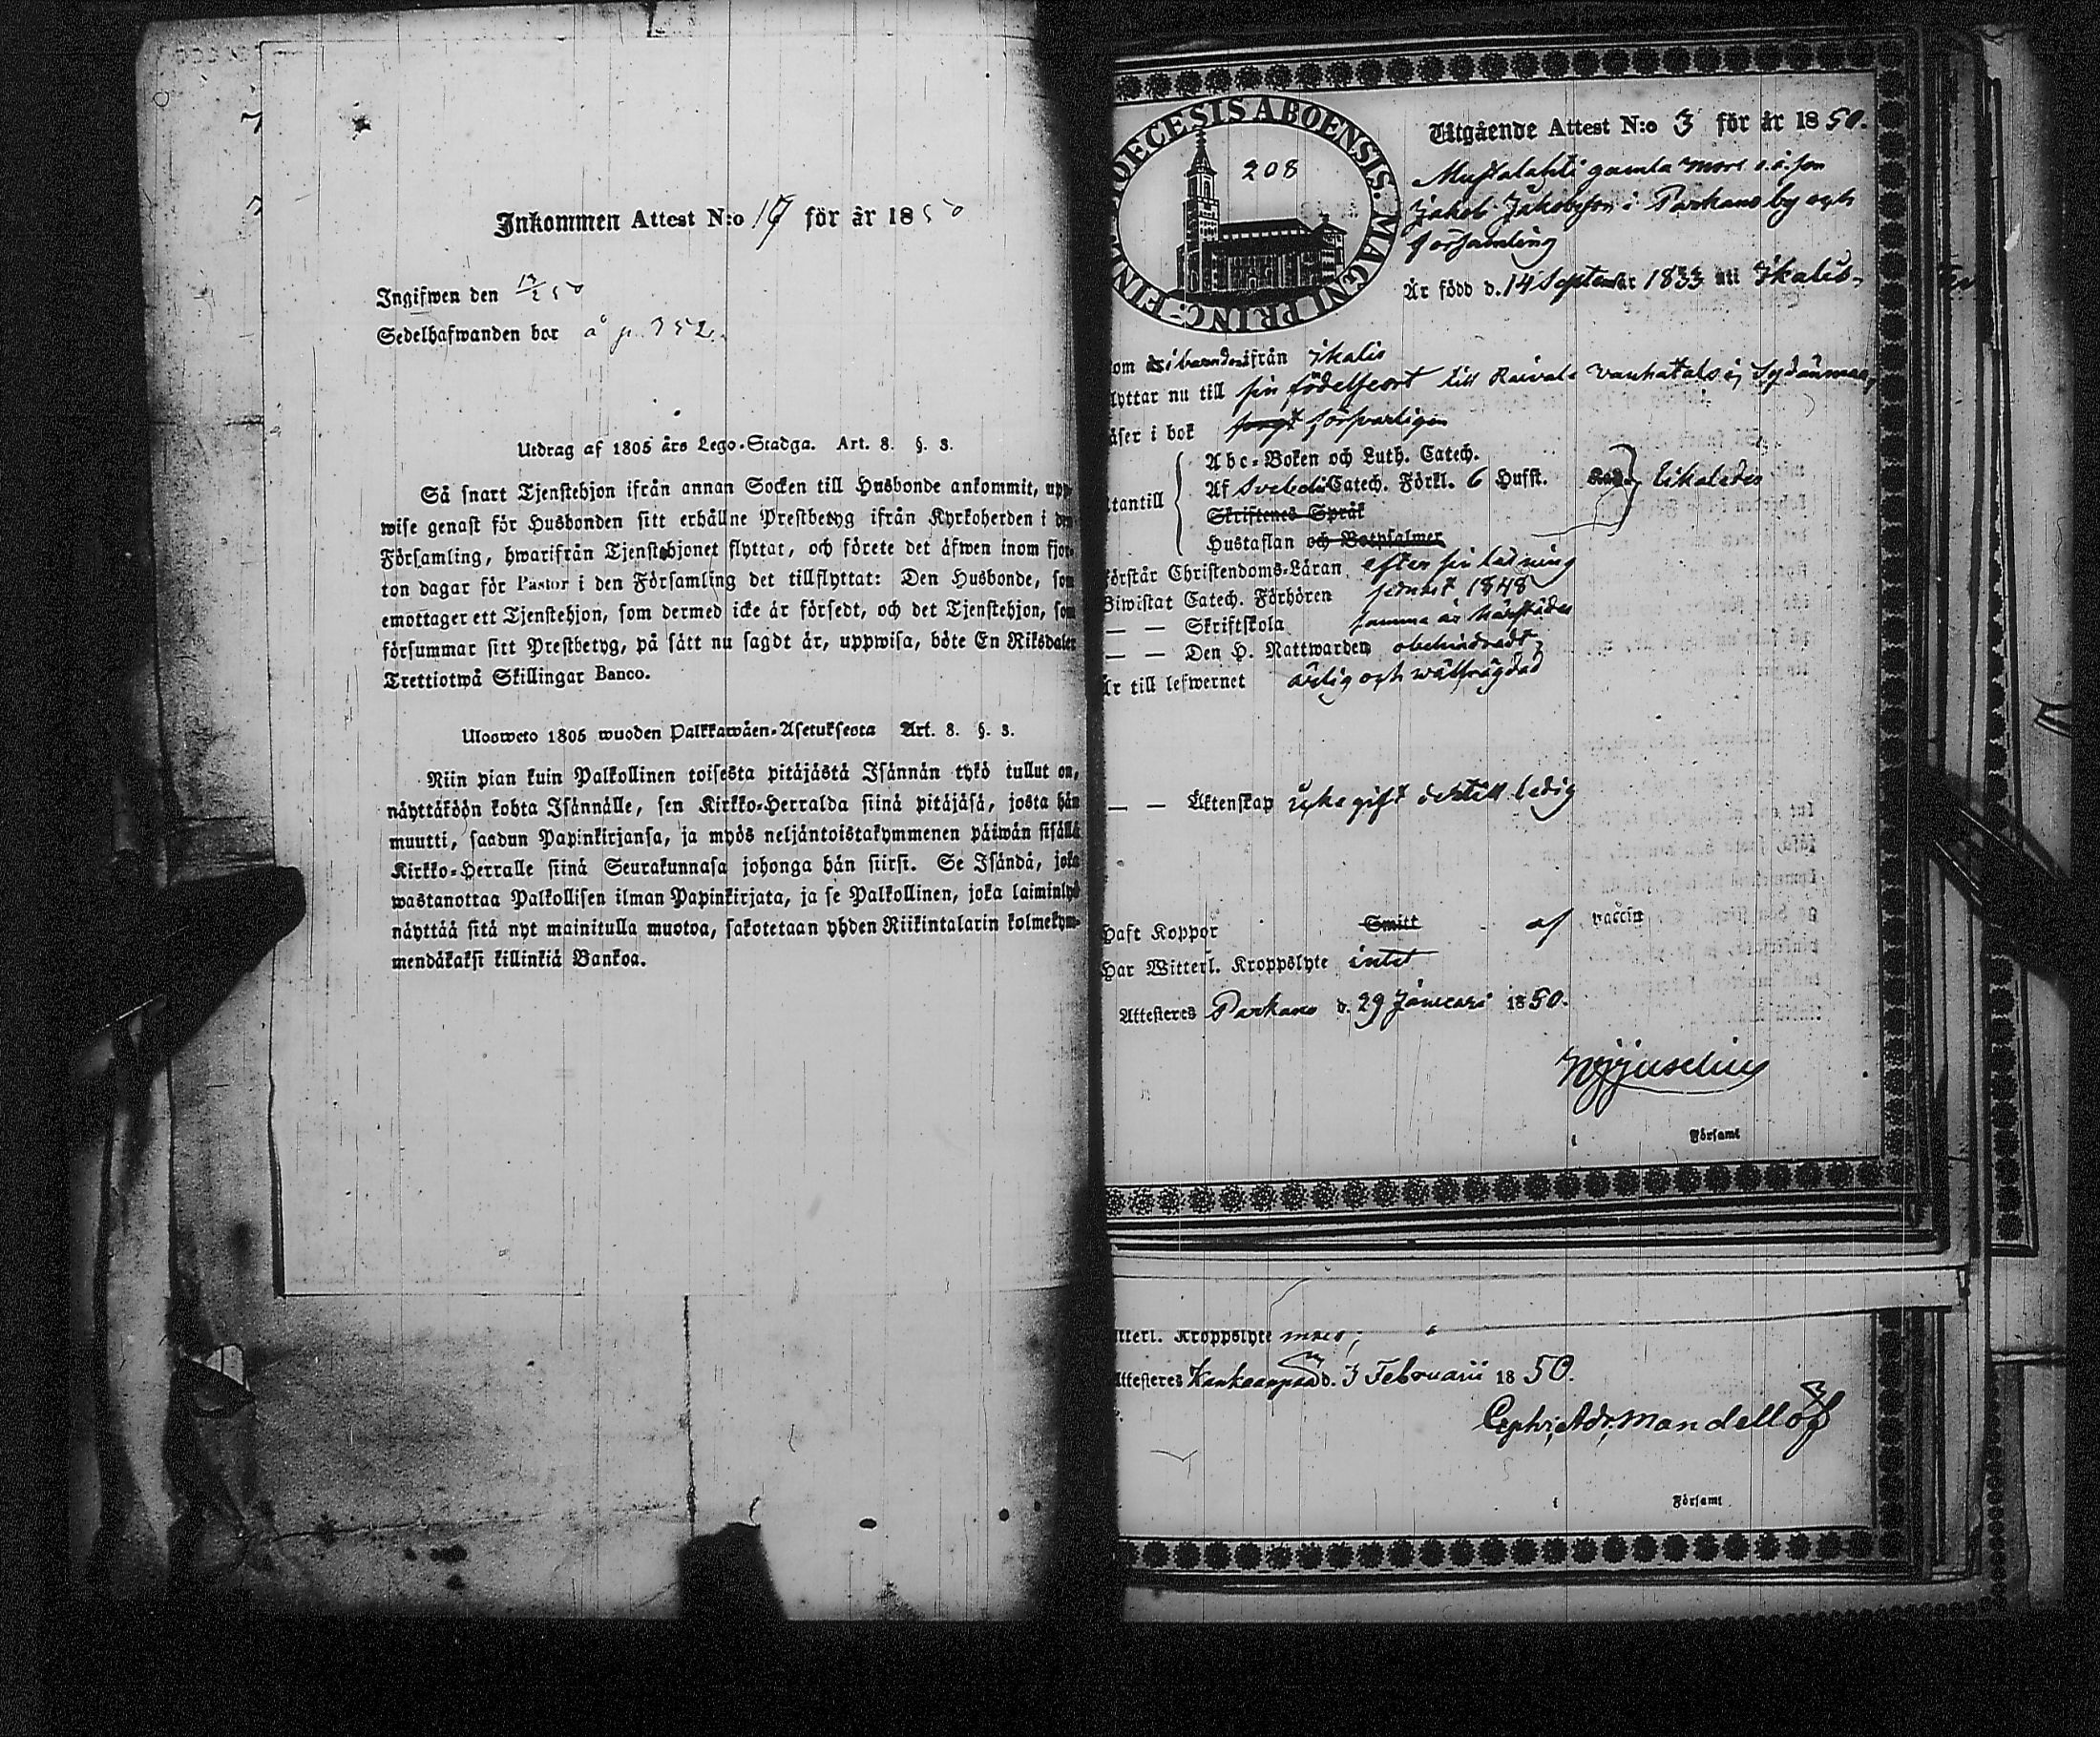 Inkommen Attest N:o 17 för år 1850
Ingifwen den 12/2 50
Sedelhafwanden bor å p. 352.
Utdrag af 1805 års Lego-Stadga. Art. 8. §. 3.
Så snart Tjenstehjon ifrån annan Socken till Husbonde ankommit, upp-
wise genast för Husbonden sitt erhållne Prestbetyg ifrån Kyrkoherden i den
Församling, hwarifrån Tjenstehjonet flyttat, och förete det äfwen inom fjor-
ton dagar för Pastor i den Församling det tillflyttat: Den Husbonde, som
emottager ett Tjenstehjon, som dermed icke är försedt, och det Tjenstehjon, som
försummar sitt Prestbetyg, på sätt nu sagdt är, uppwisa, böte En Riksdaler
Trettiotwå Skillingar Banco.
Uloosweto 1805 wuoden Palkkawäen-Asetuksesta Art. 8. §. 3.
Niin pian kuin Palkollinen toisesta pitäjästä Isännän tykö tullut on,
näyttäköön kohta Isännälle, sen Kirkko-Herralda siinä pitäjäsä, josta hän
muutti, saadun Papinkirjansa, ja myös neljäntoistakymmenen päiwän sisällä
Kirkko-Herralle siinä Seurakunnasa johonga hän siirsi. Se Isändä, joka
wastanottaa Palkollisen ilman Papinkirjata, ja se Palkollinen, joka laiminlyö
näyttää sitä nyt mainitulla muotoa, sakotetaan yhden Riikintalarin kolmekym-
mendäkaksi killinkiä Bankoa.
DIOECESIS ABOENSIS. MAGNI PRINC: FINL
208
Utgående Attest N:o 3 för år 1850.
Mustalahti gamla mors o. ä. son
Jakob Jakobsson i Parkano by och
församling
Är född d. 14 September 1833 uti Ikalis
om ifrån Ikalis
lyttar nu till sin födelseort till Raivala Vanhatalo i Sydänmaa,
äser i bok försvarligen
tantill
Abc-Boken och Luth. Catech.
Af Svebelii Catech. Förkl. 6 Hufst. likaledes
Skriftenes Språk
Hustaflan och Botpsalmer
örstår Christendoms-Läran efter sin läsning
Biwistat Catech. Förhören senast 1848
— — Skriftskola samma år härstädes
— — Den H. Nattwarden obehindradt
Är till lefwernet ärlig och wälfrägdad
— — Äktenskap icke gift och till ledig
Haft Koppor Smitt af vaccin
Har Witterl. Kroppslyte intet
Attesteres Parkano d. 29 Januari 1850.
i Församl
itterl. Kroppslyte
Attesteres Kankaanpää d. 3 Februarii 1850.
Mandellöf
i Församl